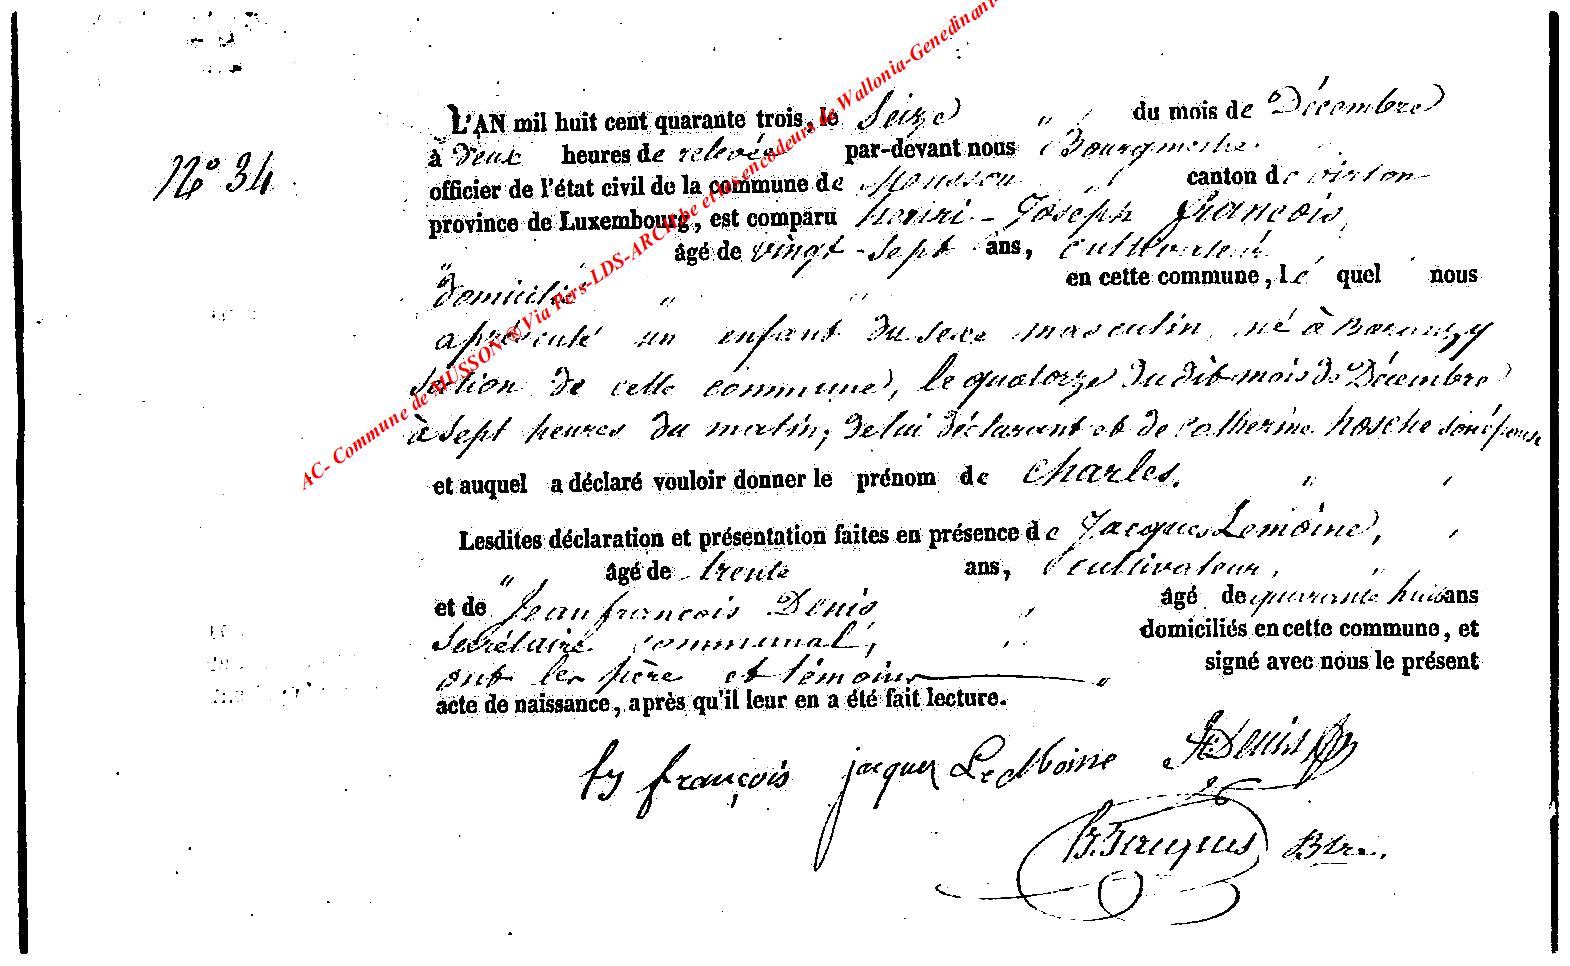 L'AN mil huit cent quarante trois, le Seize " du mois de Décembre
à deux heures de relevée par-devant nous Bourgmestre
N.º 34.
officier de l'état civil de la commune de Musson " canton de virton
province de Luxembourg, est comparu henri - Joseph françois,
" âgé de vingt-sept ans, cultivateur
domicilié " " en cette commune, le quel nous
a présenté un enfant du sexe masculin, né à Baranzy
section de cette commune, le quatorze dudit mois de Décembre
à sept heures du matin, de lui déclarant et de catherine hosche son épouse
et auquel a déclaré vouloir donner le prénom de charles. "
Lesdites déclaration et présentation faites en présence de Jacques Lemoine,
" âgé de trente ans, cultivateur, "
et de Jean françois Denis " âgé de quarante huit ans
Secrétaire communal, " domiciliés en cette commune, et
ont les père et témoins " signé avec nous le présent
acte de naissance, après qu'il leur en a été fait lecture.
hj françois jacques Le Moine Denis
Btre.
AC- Commune de MUSSON @ Via Pers-LDS-ARCH.be et les encodeurs de Wallonia-Genedinant